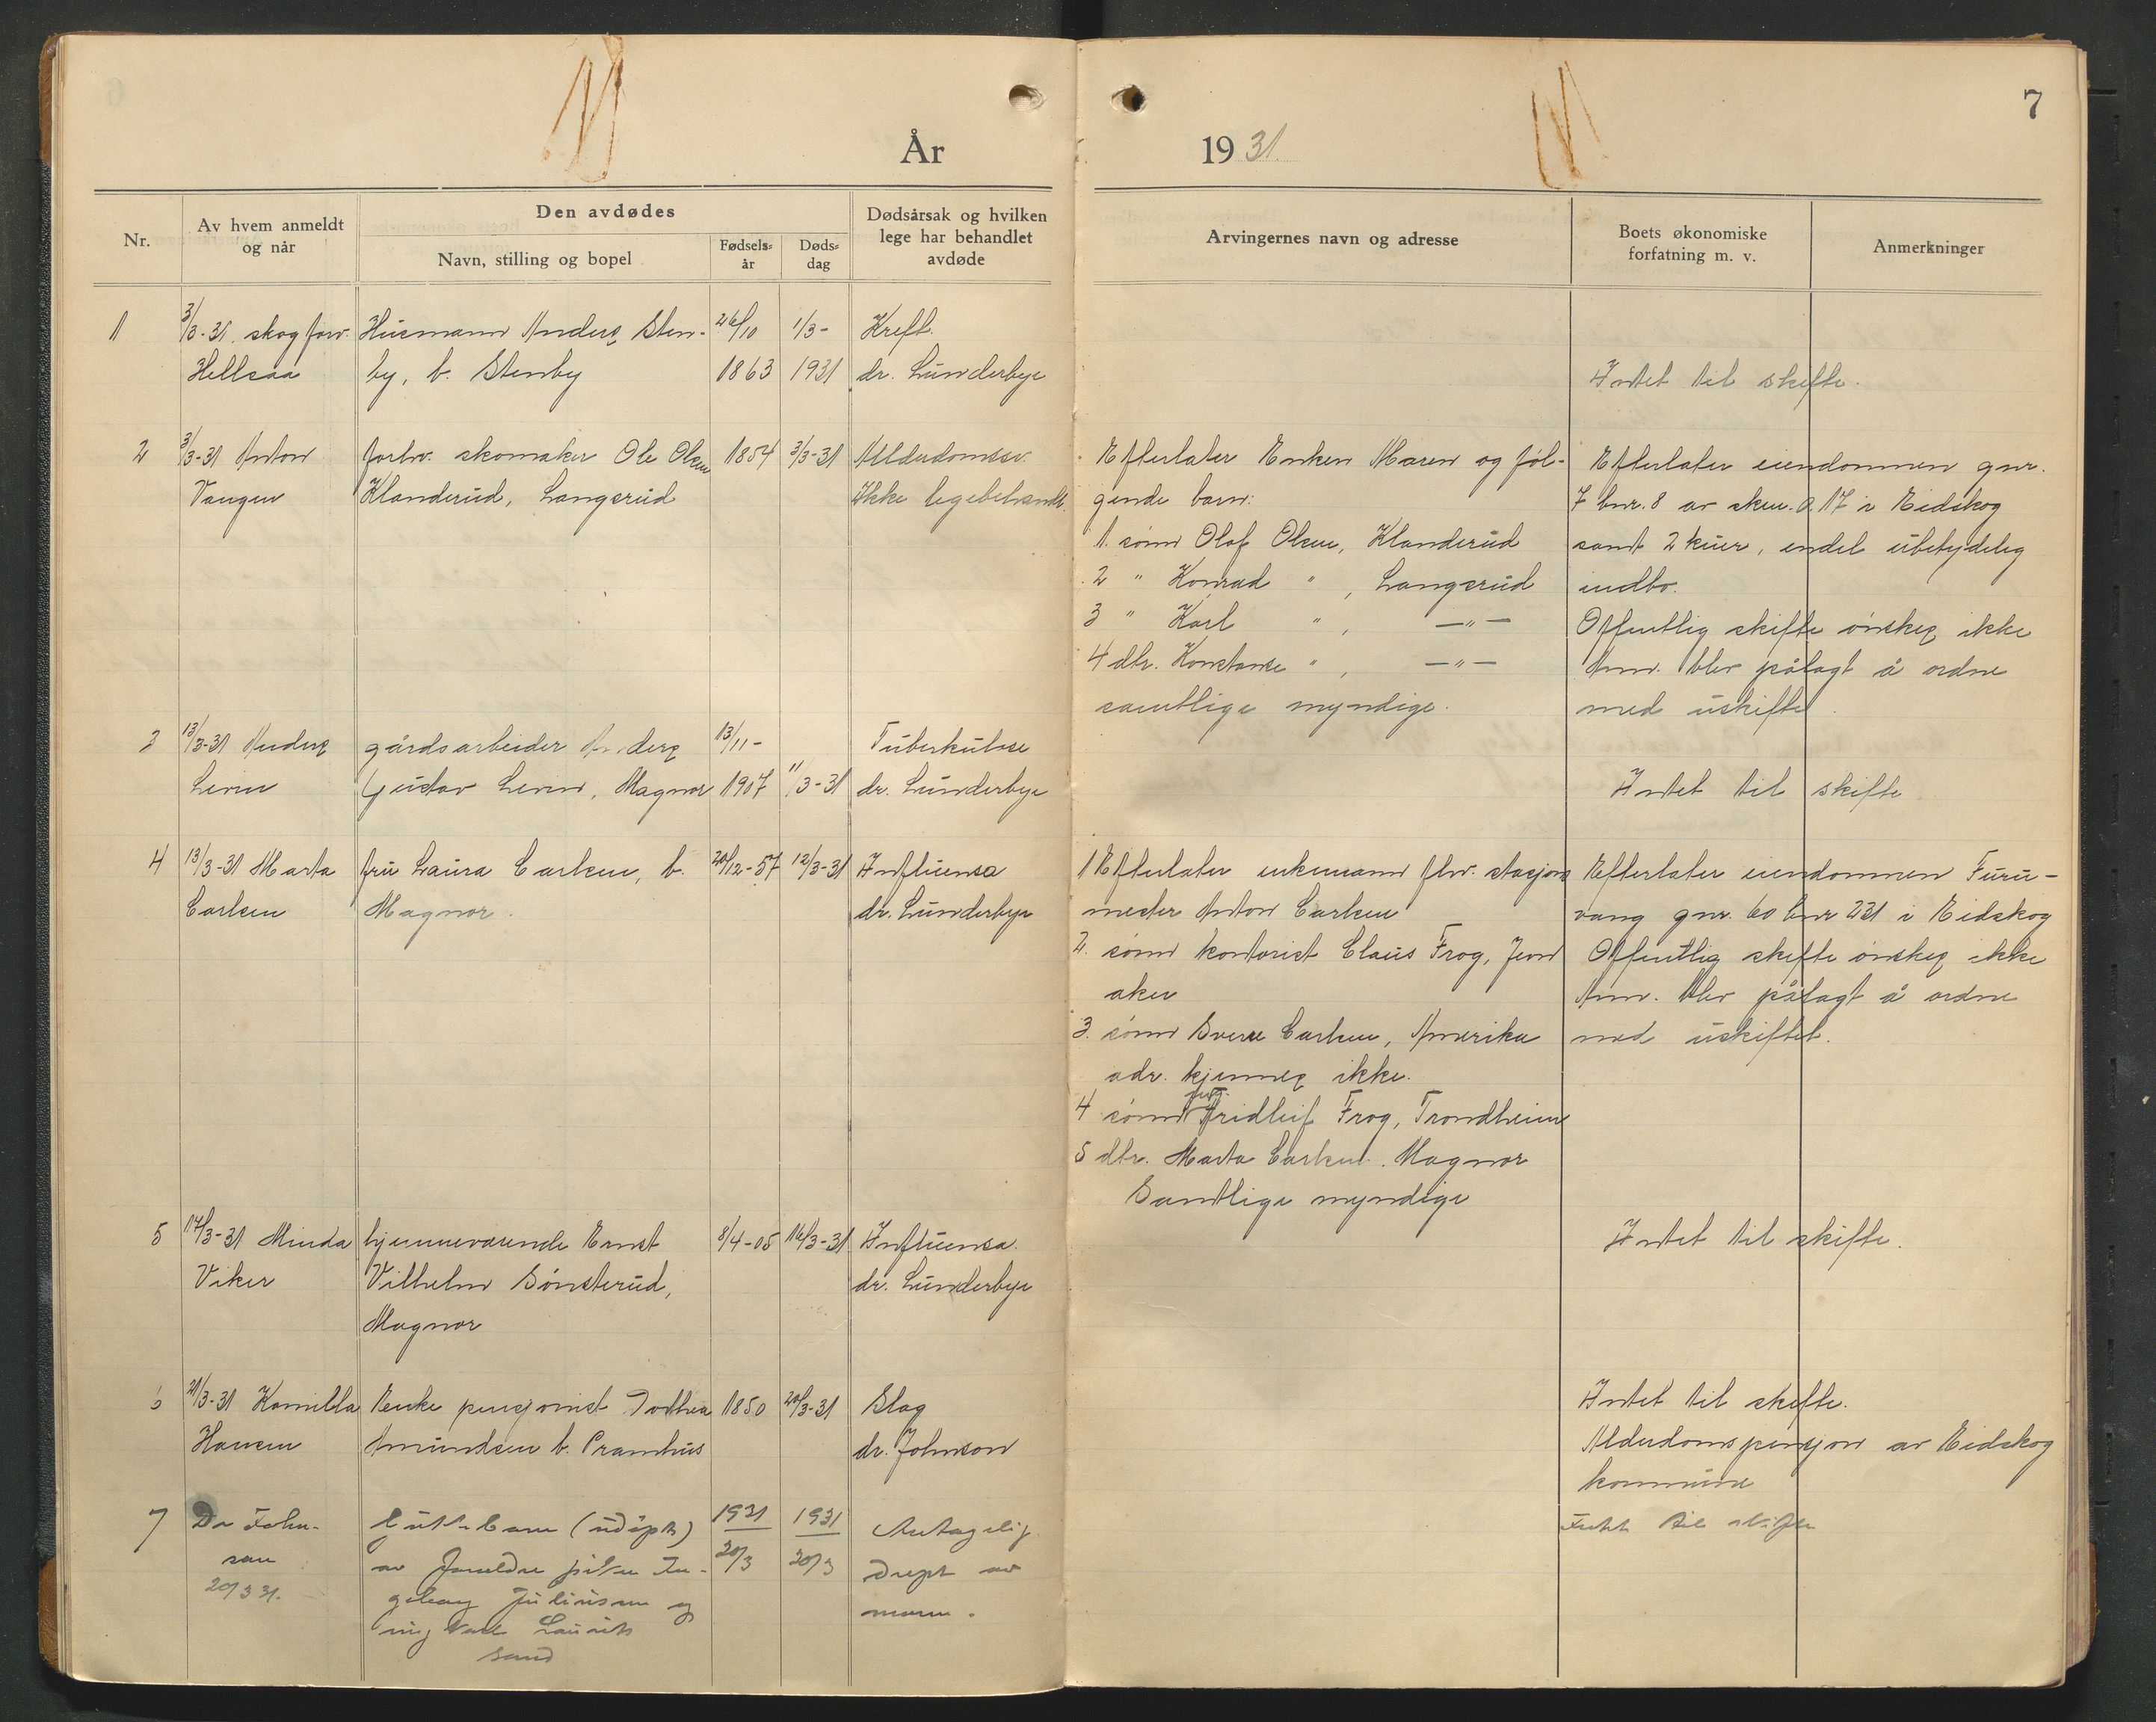 7
År
1931
Nr.
Av hvem anmeldt
og når
Den avdødes
Navn, stilling og bopel
Fødsels-
år
Døds-
dag
Dødsårsak og hvilken
lege har behandlet
avdøde
Arvingernes navn og adresse
Boets økonomiske
forfatning m. v.
Anmerkninger
1 3/3-31. skogforv. Husmann Anders Sten- 26/10 1/3- Kreft.
Hellsaa by, b. Stenby 1863 1931 dr. Lunderbye
Intet til skifte.
2 3/3-31 Anton forhv. skomaker Ole Olsen 1854 3/3-31 Alderdomssv.
Vangen Klanderud, Langsrud Ikke legebehandl.
Efterlater Enken Maren og føl-
gende barn:
1. sønn Olaf Olsen, Klanderud
2 " Konrad " , Langsrud
3 " Karl " , —"—
4 dtr. Konstanse " , —"—
samtlige myndige.
Efterlater eiendommen gnr.
7 bnr. 8 av skm. 0,17 i Eidskog
samt 2 kuer, endel ubetydelig
indbo.
Offentlig skifte ønskes ikke
Anm. blev pålagt å ordne
med uskifte.
3 13/3-31 Anders gårdsarbeider Anders 13/11- Tuberkulose
Levin Gustav Levin, Magnor 1907 11/3-31 dr. Lunderbye
Intet til skifte
4 13/3-31 Marta fru Laura Carlsen, b. 20/12-57 12/3-31 Influensa
Carlsen Magnor. dr. Lunderbye
1 Efterlater enkemann fhv. stasjons
mester Anton Carlsen
2. sønn kontorist Claus Frog,
aker
3. sønn Sverre Carlsen, Amerika
adr. kjennes ikke.
4 sønn Fridleif Frog, Trondheim
5 dtr. Marta Carlsen. Magnor
Samtlige myndige
Efterlater eiendommen Furu-
vang gnr. 60 bnr 231 i Eidskog
Offentlig skifte ønskes ikke
Anm. blev pålagt å ordne
med uskiftet.
5 17/3-31 Minda hjemmeværende Ernst 8/4-05 16/3-31 Influensa.
Viker Vilhelm Sønsterud, dr. Lunderbye
Magnor
Intet til skifte.
6 21/3-31 Kamilla Enke pensjonist Dorthea 1850 20/3-31 Slag
Hansen Amundsen b. Pramhus dr. Johnson
Intet til skifte.
Alderdomspensjon av Eidskog
kommune
7 Dr John- Guttebarn (udøpt) 1931 1931 Antagelig
son av foreldre pike In- 20/3 20/3 drept av
20/3 31. geborg Juliussen og moren.
ungkarl Laurits
Sand
Intet til skifte